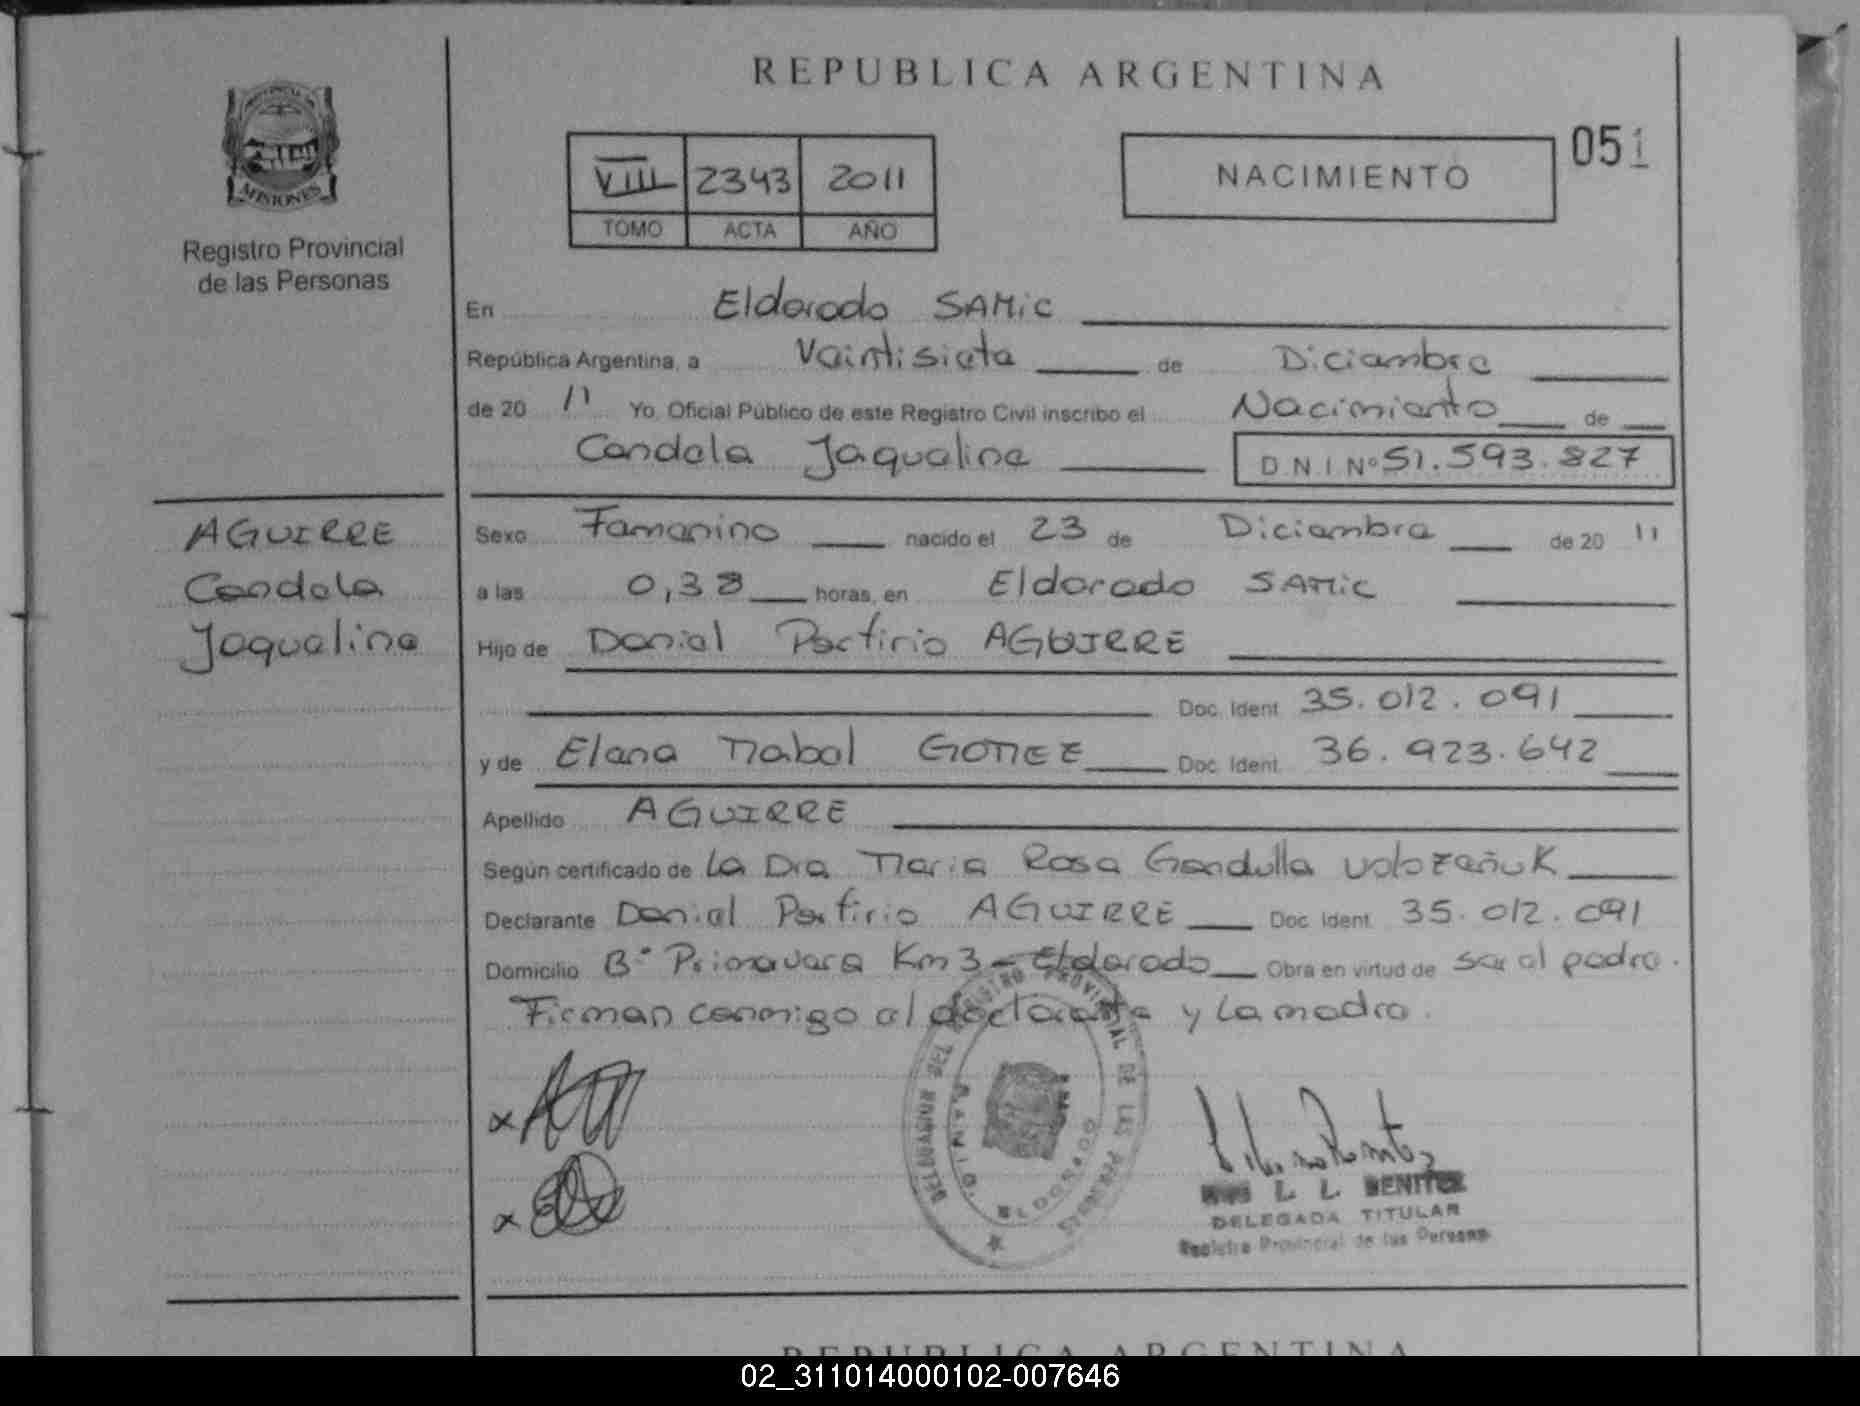 REPUBLICA ARGENTINA
MISIONES
Registro Provincial
de las Personas
VIII 2343 2011
TOMO ACTA AÑO
NACIMIENTO
051
En Eldorado SAMic
República Argentina, a Veintisiete de Diciembre
de 20 11 Yo, Oficial Público de este Registro Civil inscribo el Nacimiento de
Candela Jaqueline D.N.I Nº 51.593.827
AGUIRRE
Candela
Jaqueline
Sexo Femenino nacido el 23 de Diciembre de 20 11
a las 0,38 horas, en Eldorado SAMic
Hijo de Daniel Porfirio AGUIRRE
Doc. Ident. 35.012.091
y de Elena Mabel GOMEZ Doc. Ident. 36.923.642
Apellido AGUIRRE
Según certificado de La Dra Maria Rosa Gandulla
Declarante Daniel Porfirio AGUIRRE Doc. Ident. 35.012.091
Domicilio Bº Primavera Km 3 - Eldorado Obra en virtud de ser el padre.
Firman conmigo el declarante y La madre.
x
x
DELEGACION DEL REGISTRO PROVINCIAL DE LAS PERSONAS
ELDORADO
L. L. BENITEZ
DELEGADA TITULAR
Registro Provincial de las Personas
REPUBLICA ARGENTINA
02_311014000102-007646